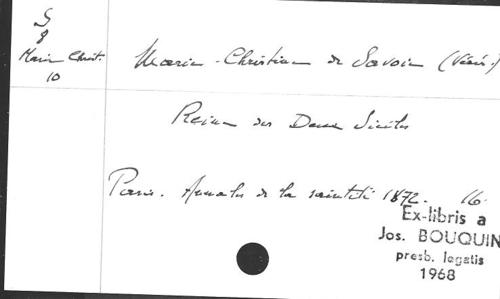 S
8
Marie Christ.
10
Marie-Christine de Savoie (Vénér.)
Reine des Deux Siciles
Paris. Annales de la sainteté 1872. 16.
Ex-libris a
Jos. BOUQUIN
presb. legatis
1968